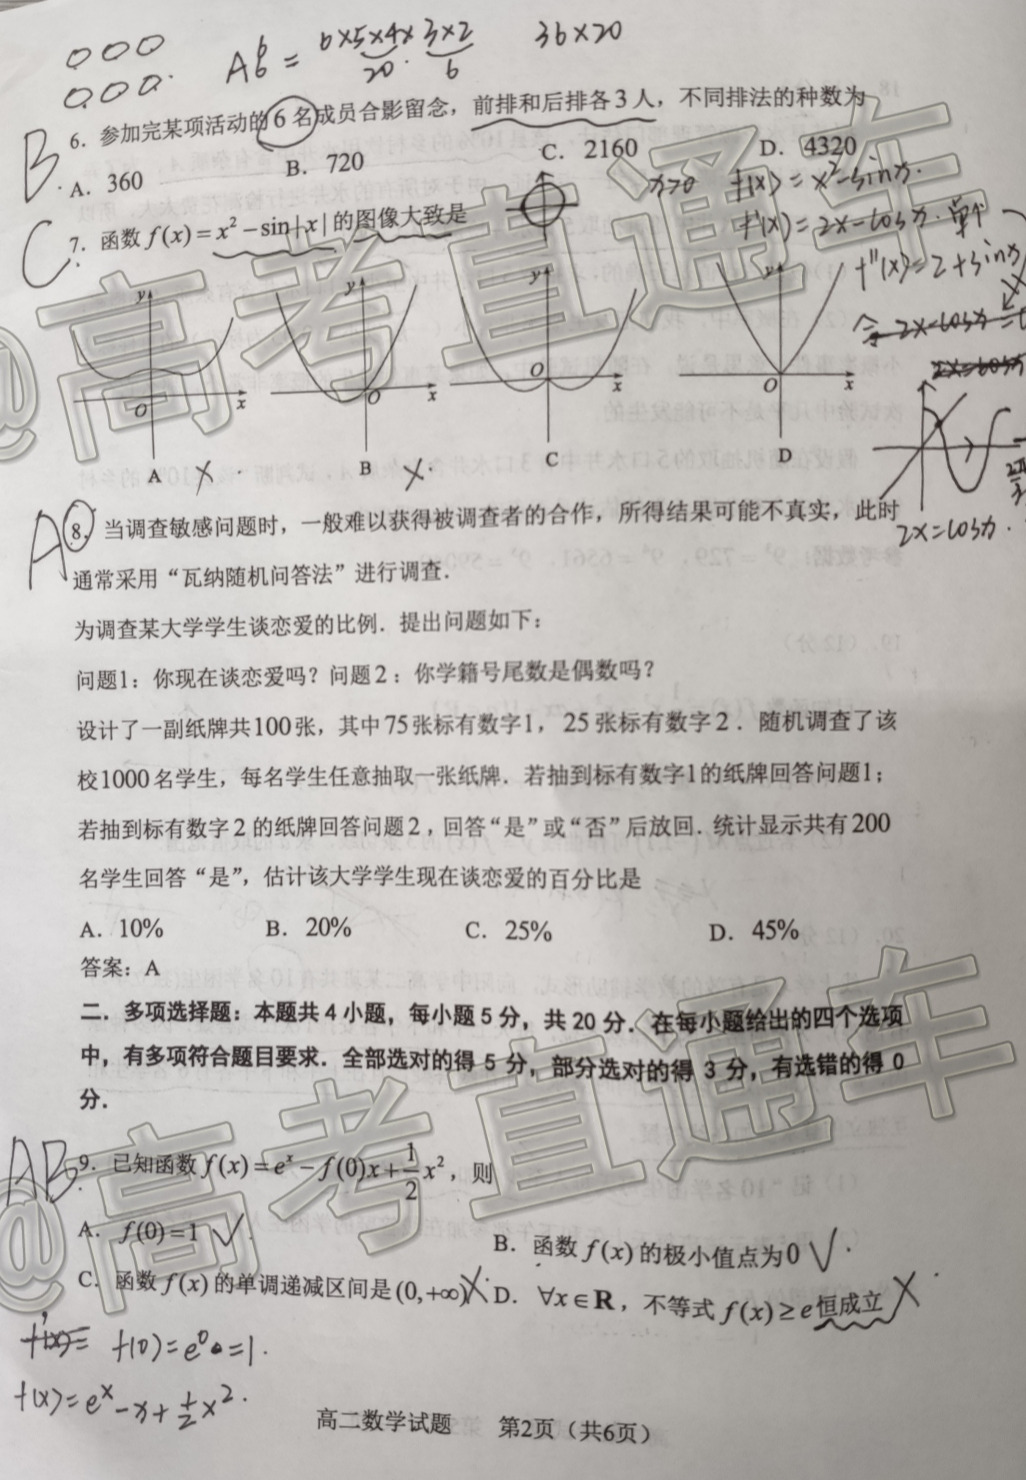 A₆⁶ = 6×5×4×3×2 36×20
20 · 6
B
6．参加完某项活动的6名成员合影留念，前排和后排各3人，不同排法的种数为
A．360 B．720 C．2160 D．4320
x>0 f(x)=x²-sinx.
f'(x)=2x-cosx. 单个
f''(x)=2+sinx
C
7．函数f(x)=x²-sin|x|的图像大致是
y y y y
O x O x O x O x
A × B × C D
2x=cosx.
A
8．当调查敏感问题时，一般难以获得被调查者的合作，所得结果可能不真实，此时
通常采用“瓦纳随机问答法”进行调查．
为调查某大学学生谈恋爱的比例．提出问题如下：
问题1：你现在谈恋爱吗？问题2：你学籍号尾数是偶数吗？
设计了一副纸牌共100张，其中75张标有数字1，25张标有数字2．随机调查了该
校1000名学生，每名学生任意抽取一张纸牌．若抽到标有数字1的纸牌回答问题1；
若抽到标有数字2的纸牌回答问题2，回答“是”或“否”后放回．统计显示共有200
名学生回答“是”，估计该大学学生现在谈恋爱的百分比是
A．10% B．20% C．25% D．45%
答案：A
二．多项选择题：本题共4小题，每小题5分，共20分．在每小题给出的四个选项
中，有多项符合题目要求．全部选对的得5分，部分选对的得3分，有选错的得0
分．
AB
9．已知函数f(x)=eˣ-f(0)x+1/2x²，则
A．f(0)=1 √ B．函数f(x)的极小值点为0 √
C．函数f(x)的单调递减区间是(0,+∞) × D．∀x∈R，不等式f(x)≥e恒成立 ×
f(0)=e⁰=1.
f(x)=eˣ-x+1/2x².
高二数学试题 第2页（共6页）
@高考直通车
@高考直通车